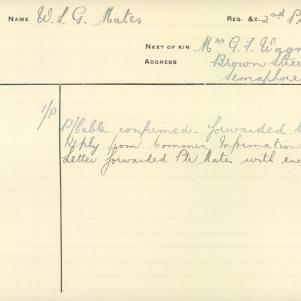 NAME W. L. G. Mates REG. &C. 2nd P
NEXT OF KIN Mrs G. F. Wagn
ADDRESS Brown Stree
Semaphore
1/P
P/Cable confirmed forwarded
Reply from Commis. Information
Letter forwarded Pte Mates with en